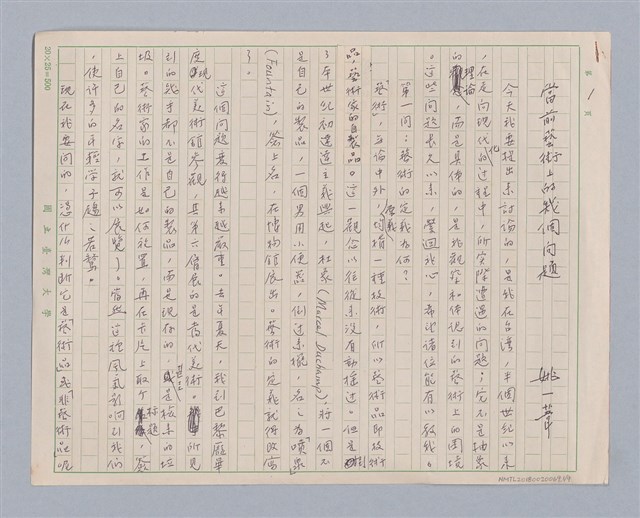 第 1 頁
當前藝術上的幾個問題
姚一葦
今天我要提出來討論的,是我在台灣,半個世紀以來
,在走向現代化的過程中,所實際遭遇的問題;它不是抽象
的理論,而是具體的,是我觀察和體認到的藝術上的困境
。這些問題長久以來,縈迴我心,希望諸位能有以教我。
第一問:藝術的定義為何?
「藝術」,無論中外,原義均指一種技術,所以藝術品即技術
品,藝術家的自製品。這一觀念以往從來沒有動搖過。但是
了本世紀初達達主義興起,杜象(Marcel Duchamp)將一個不
是自己的製品,一個男用小便器,倒過來擺,名之為「噴泉」
(Fountain),簽上名,在博物館展出。藝術的定義就得改寫
了。
這個問題變得越來越嚴重。去年夏天,我到巴黎龐畢
度現代美術館參觀,其第六層展的是當代美術。所見
到的幾乎都不是自己的製品,而是現存的,甚至是檢來的垃
圾。藝術家的工作是如何放置,再在卡片上取個標題,簽
上自己的名字,就可以展覽了。當然這種風氣影響到我們
,使許多的年輕學子趨之若鶩。
現在我要問的,憑什麼判斷它是「藝術」品或「非藝術」品呢
20×25=500
國立臺灣大學